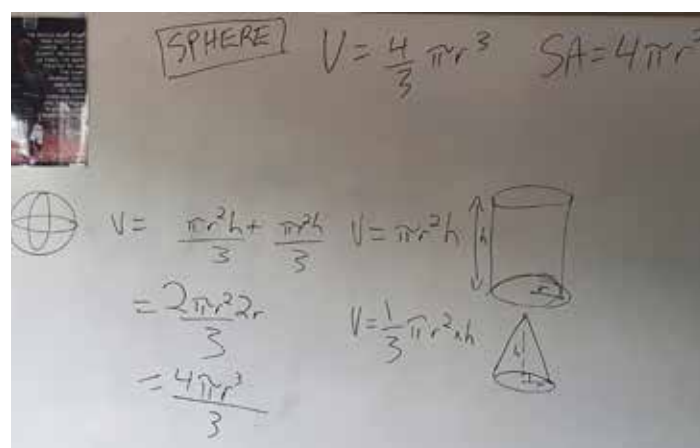 SPHERE V = 4/3 πr³ SA = 4πr²
V = πr²h/3 + πr²h/3 V = πr²h h r
= 2πr²2r/3 V = 1/3 πr² × h h r
= 4πr³/3